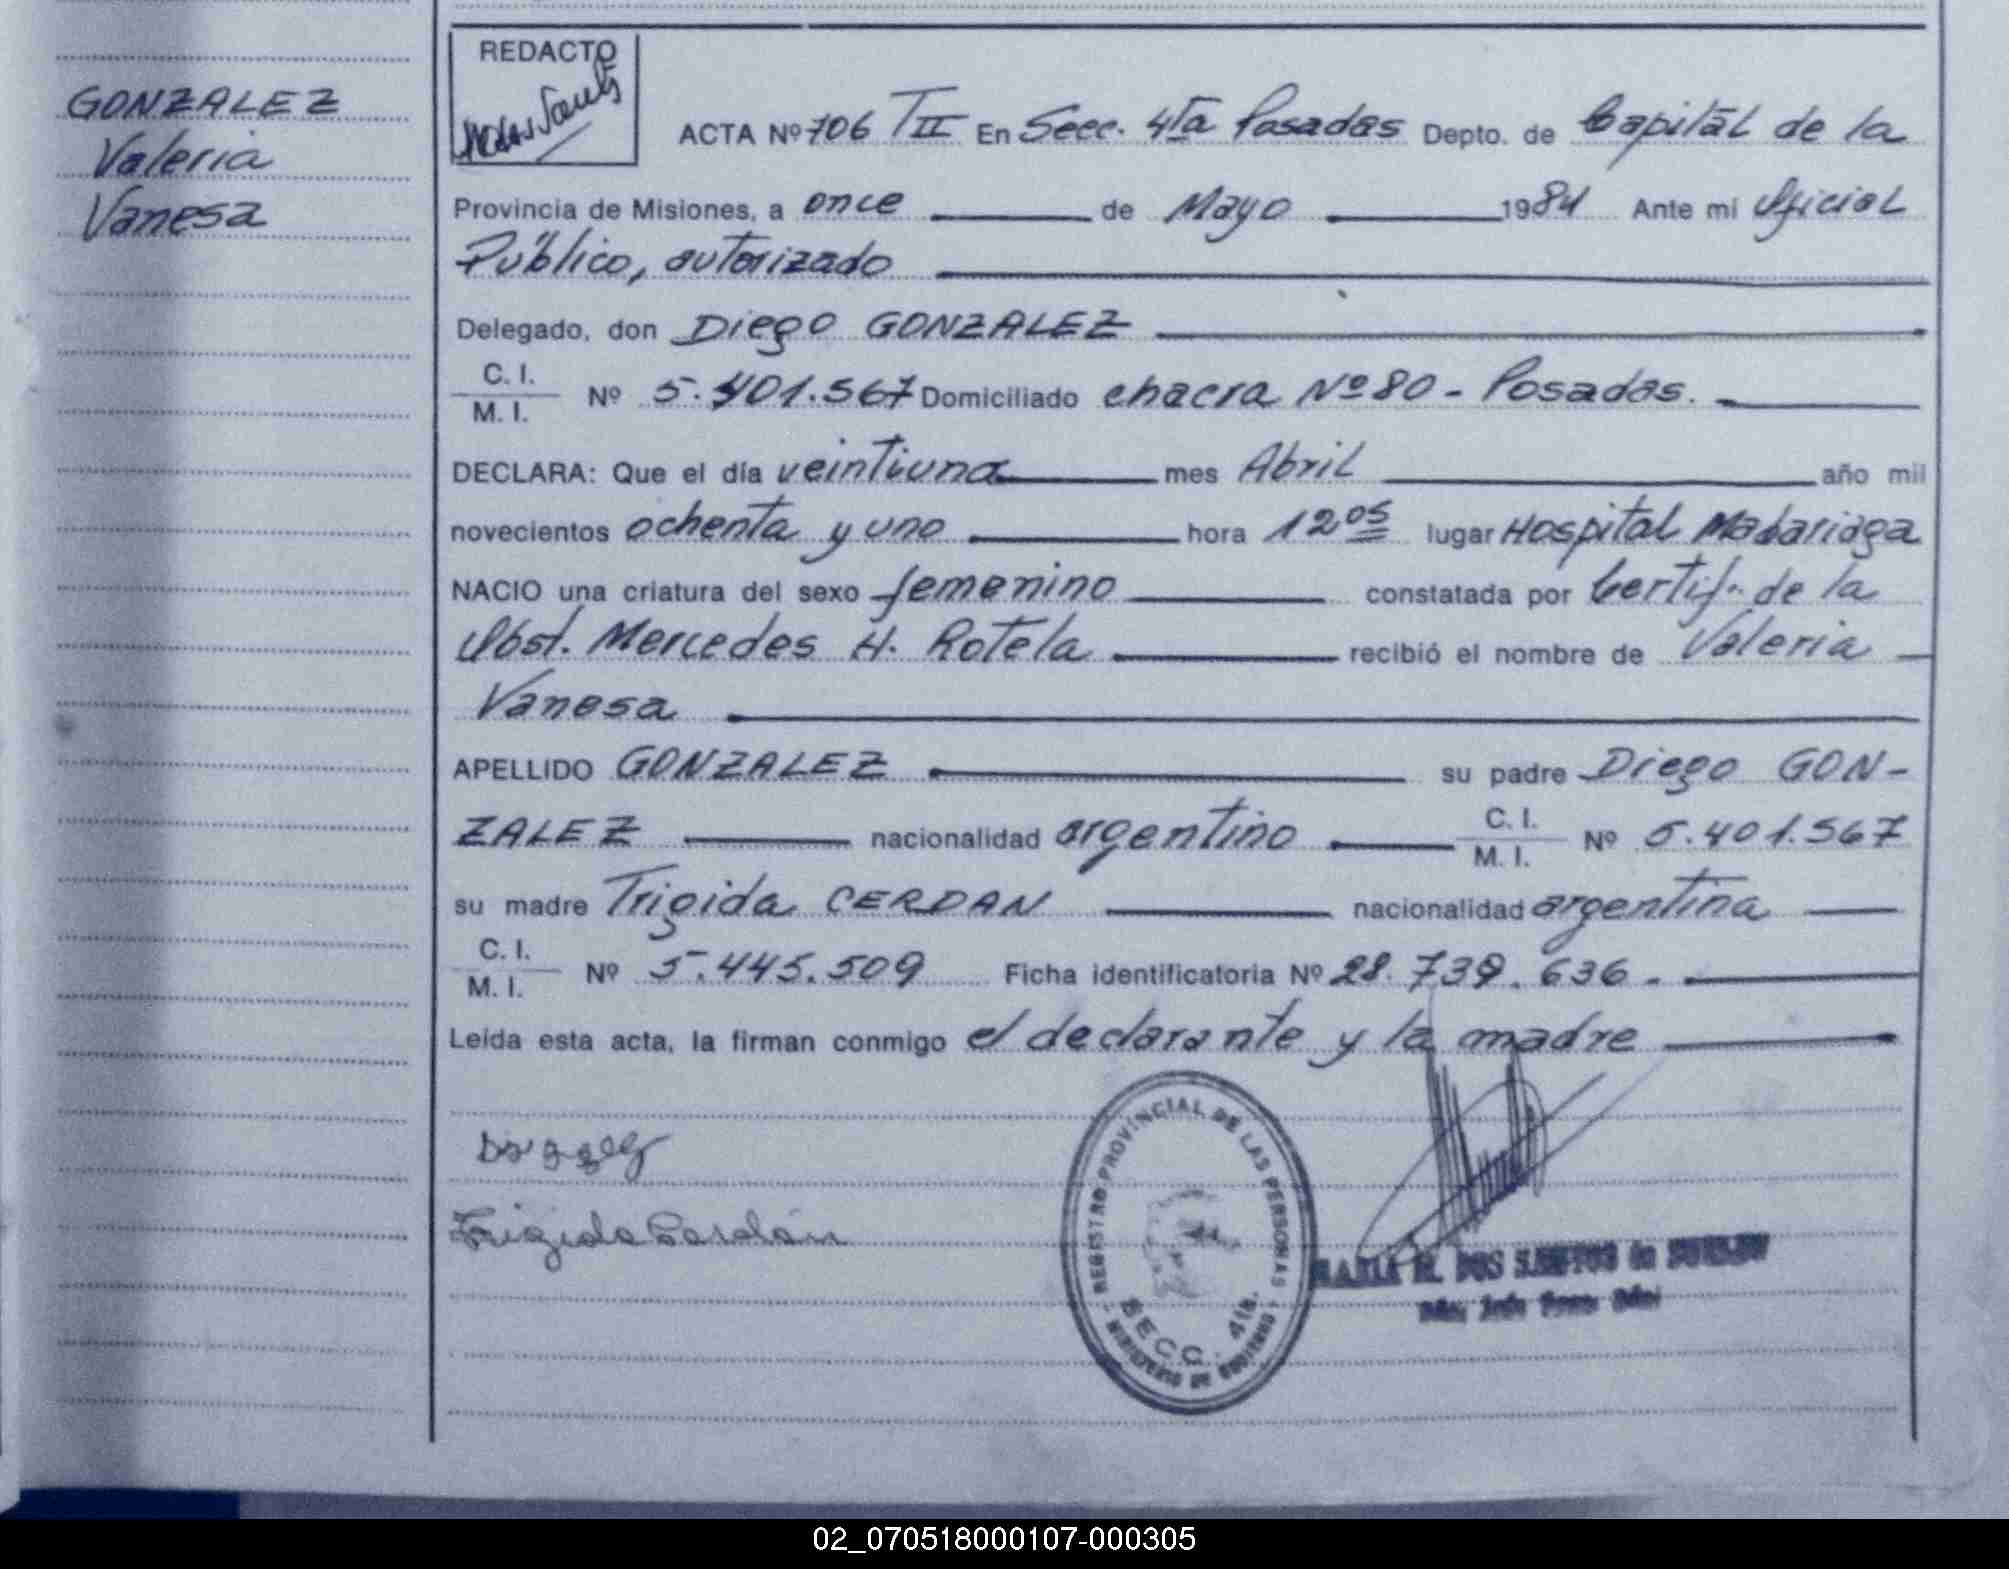 GONZALEZ
Valeria
Vanesa
REDACTO
ACTA Nº 706 TII En Secc. 4ta Posadas Depto. de Capital de la
Provincia de Misiones, a once de Mayo 1981 Ante mi Oficial
Público, autorizado
Delegado, don Diego GONZALEZ
C. I.
M. I. Nº 5.401.567 Domiciliado chacra Nº 80 - Posadas.
DECLARA: Que el día veintiuno mes Abril año mil
novecientos ochenta y uno hora 12 05 lugar Hospital Madariaga
NACIO una criatura del sexo femenino constatada por Certif. de la
Obst. Mercedes H. Rotela recibió el nombre de Valeria
Vanesa
APELLIDO GONZALEZ su padre Diego GON-
ZALEZ nacionalidad argentino C. I. M. I. Nº 5.401.567
su madre Frigida CERDAN nacionalidad argentina
C. I.
M. I. Nº 5.445.509 Ficha identificatoria Nº 28.739.636.-
Leída esta acta, la firman conmigo el declarante y la madre
Frigida Cerdán
REGISTRO PROVINCIAL DE LAS PERSONAS
SECC. 4ta.
MINISTERIO DE GOBIERNO
MARIA M. DOS SANTOS de
02_070518000107-000305